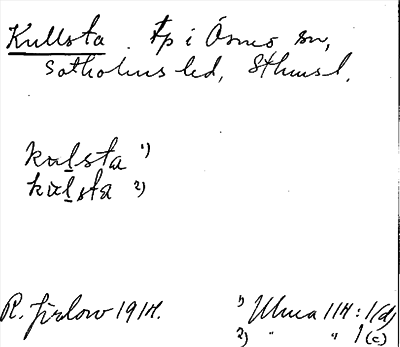 Kullsta tp i Ösmo sn,
Sotholms hd, Sthmsl.
kulsta 1)
kulsta 2)
R. Jirlow 1914. 1) Ulma 114:1(d)
2) " " 1(c)